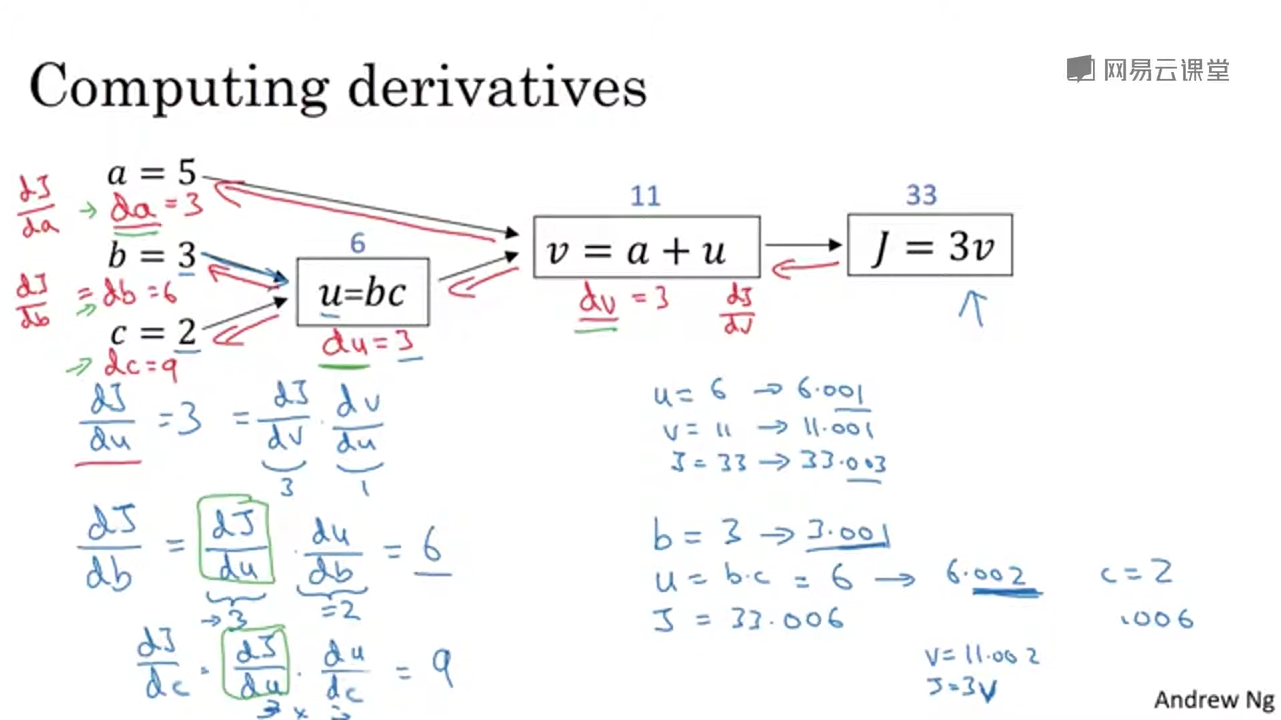 Computing derivatives
网易云课堂
a = 5
dJ/da → da = 3
b = 3
dJ/db = → db = 6
c = 2
→ dc = 9
6
u=bc
du = 3
11
v = a + u
dv = 3 dJ/dv
33
J = 3v
dJ/du = 3 = dJ/dv · dv/du
3 1
dJ/db = dJ/du · du/db = 6
→ 3 = 2
dJ/dc = dJ/du · du/dc = 9
3 × 3
u = 6 → 6.001
v = 11 → 11.001
J = 33 → 33.003
b = 3 → 3.001
u = b·c = 6 → 6.002 c = 2
J = 33.006 .006
v = 11.002
J = 3v
Andrew Ng